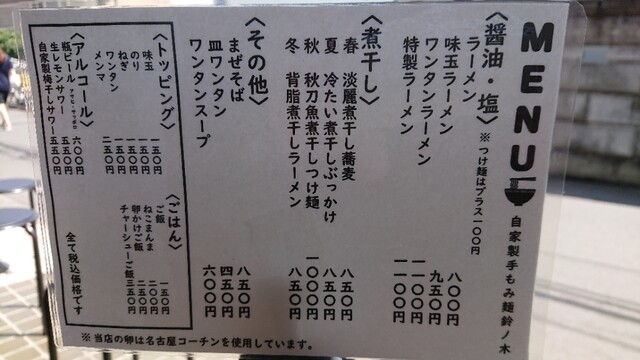 MENU
自家製手もみ麺鈴ノ木
〈醤油・塩〉※つけ麺はプラス一〇〇円
ラーメン 八〇〇円
味玉ラーメン 九五〇円
ワンタンラーメン 一一〇〇円
特製ラーメン 一一〇〇円
〈煮干し〉
春 淡麗煮干し蕎麦 八五〇円
夏 冷たい煮干しぶっかけ 八五〇円
秋 秋刀魚煮干しつけ麺 一〇〇〇円
冬 背脂煮干しラーメン 八五〇円
〈その他〉
まぜそば 八五〇円
皿ワンタン 四五〇円
ワンタンスープ 六〇〇円
〈トッピング〉
味玉 一五〇円
のり 一五〇円
ねぎ 一五〇円
ワンタン
メンマ 二五〇円
〈ごはん〉
ご飯 一五〇円
ねこまんま 二五〇円
卵かけご飯 二〇〇円
チャーシューご飯 三五〇円
〈アルコール〉
瓶ビール アサヒ・サッポロ 六〇〇円
生レモンサワー 五五〇円
自家製梅干しサワー 五五〇円
全て税込価格です
※当店の卵は名古屋コーチンを使用しています。